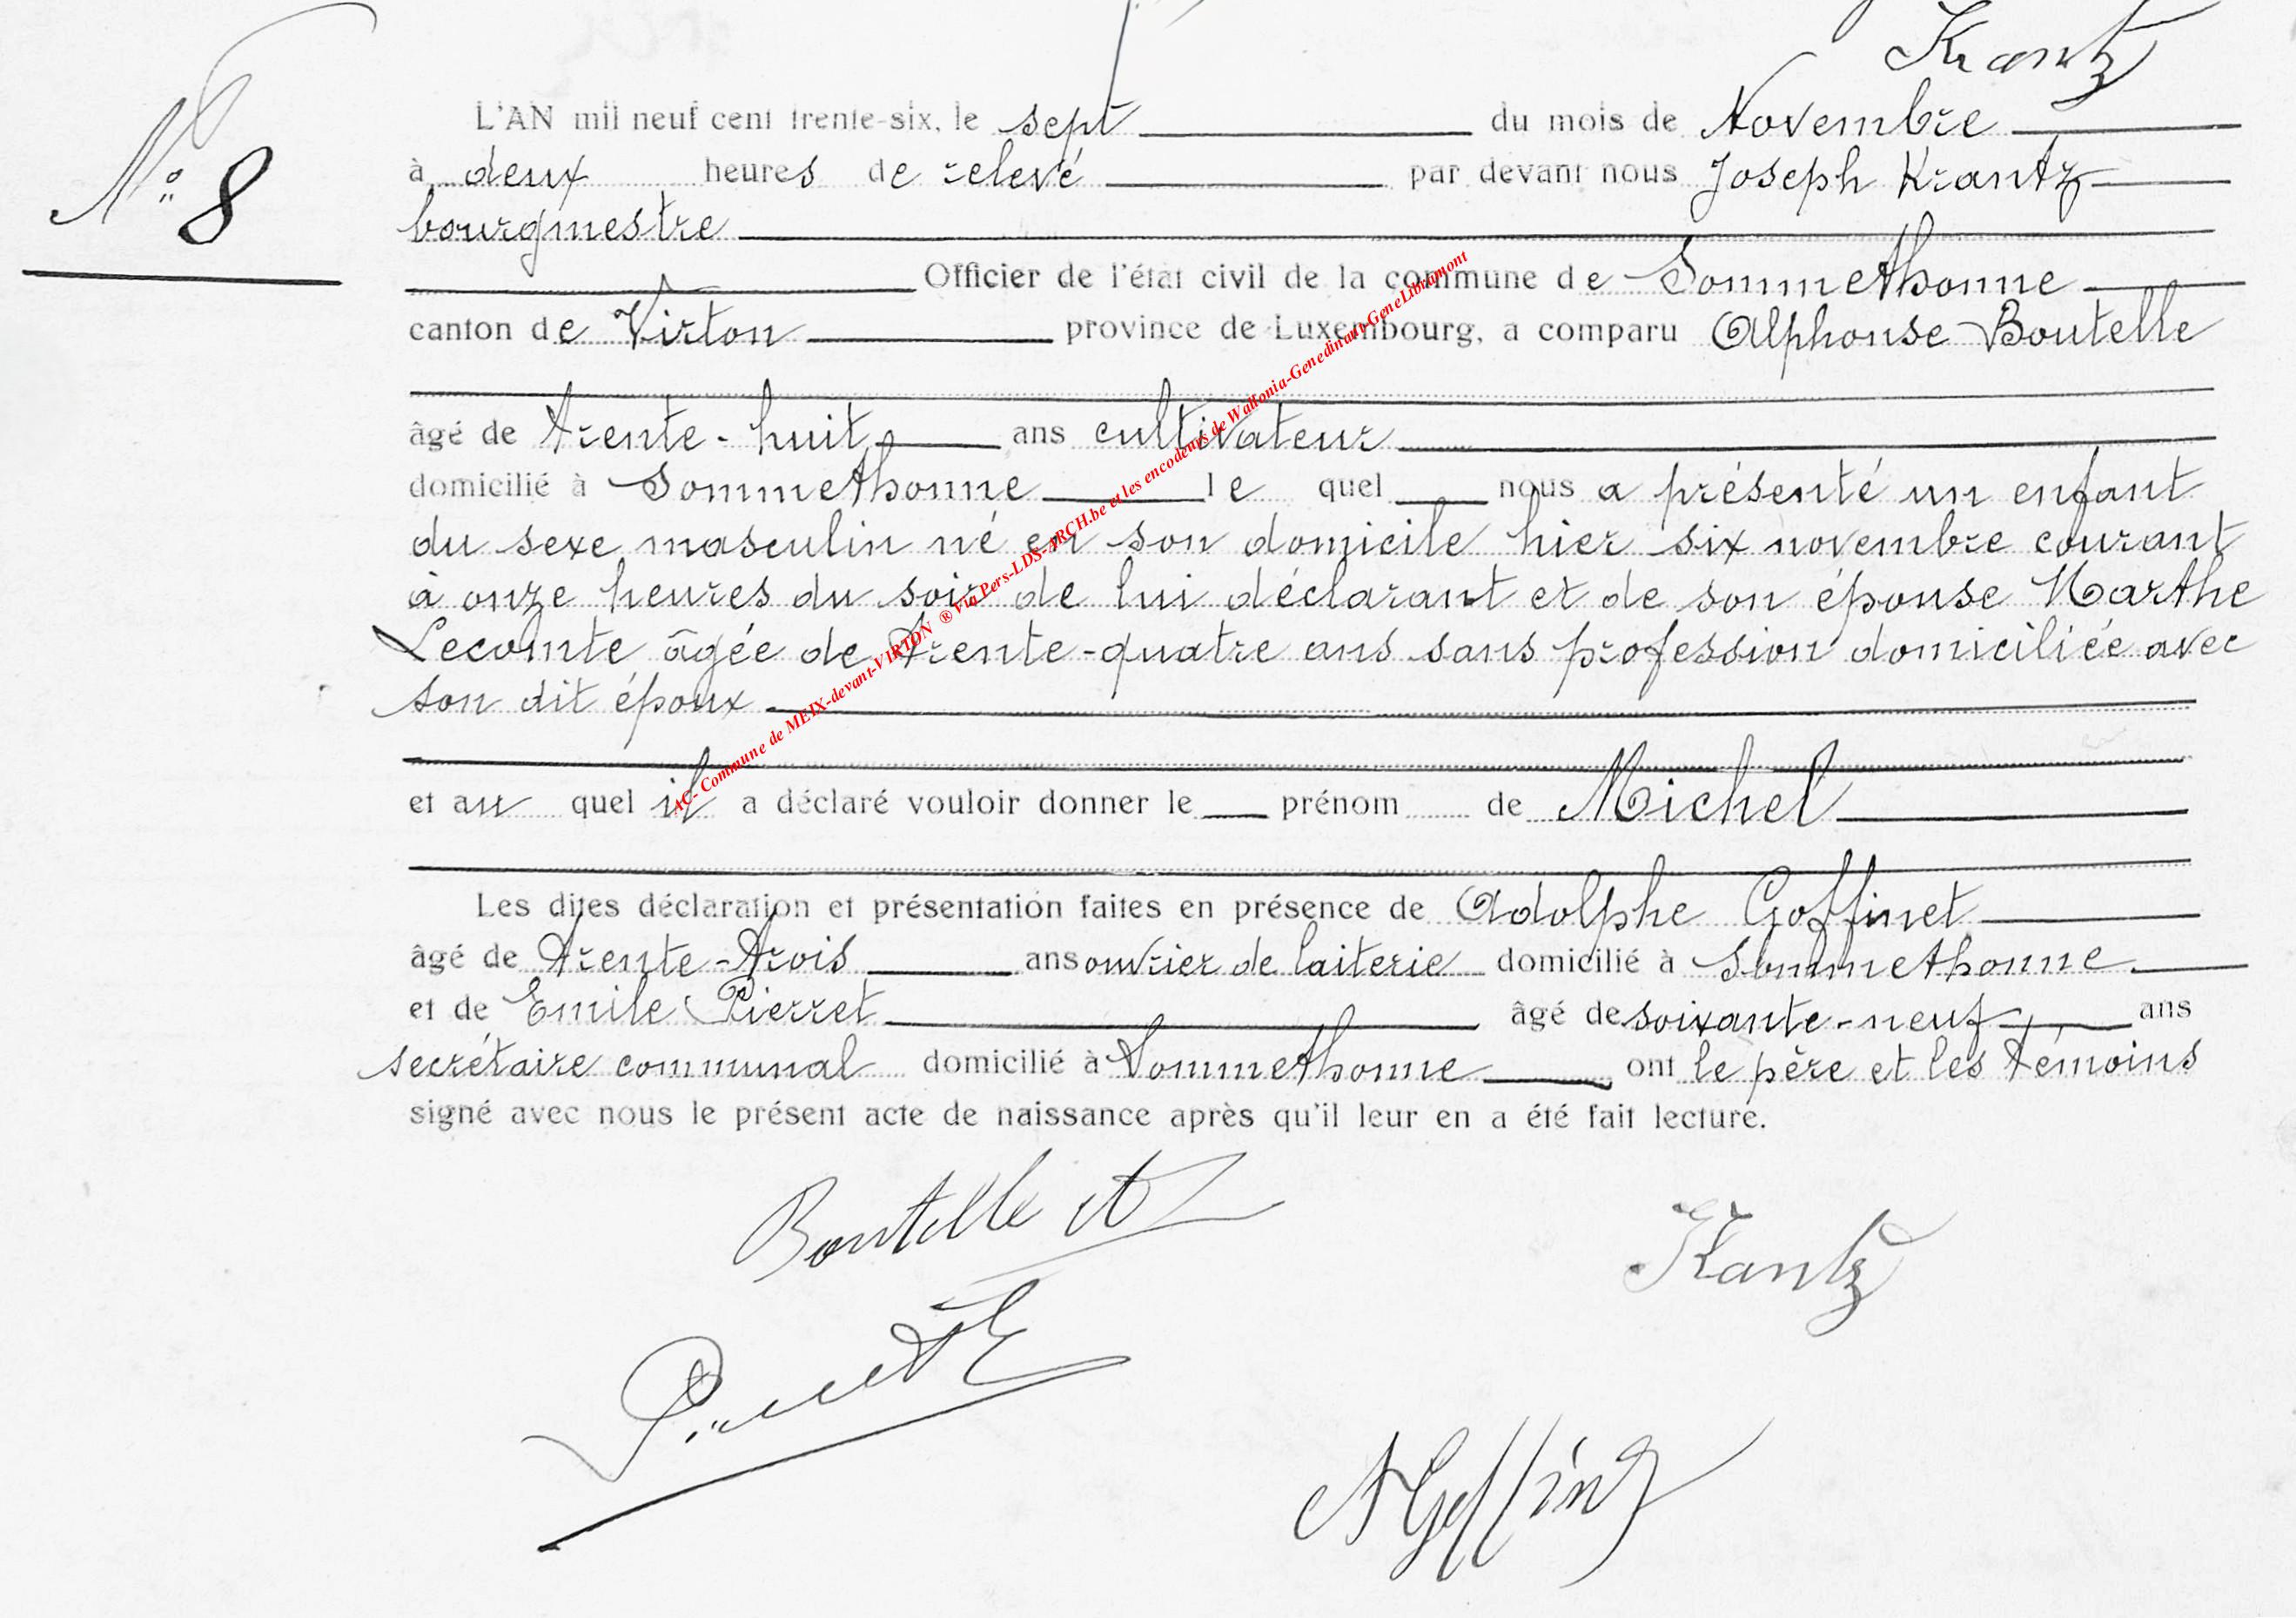 Krantz
L'AN mil neuf cent trente-six, le sept du mois de Novembre
N° 8
à deux heures de relevé par devant nous Joseph Krantz
bourgmestre
Officier de l'état civil de la commune de Sommethonne
canton de Virton province de Luxembourg, a comparu Alphonse Boutelle
âgé de trente-huit ans cultivateur
domicilié à Sommethonne lequel nous a présenté un enfant
du sexe masculin né en son domicile hier six novembre courant
à onze heures du soir de lui déclarant et de son épouse Marthe
Lecomte âgée de trente-quatre ans sans profession domiciliée avec
son dit époux
et au quel il a déclaré vouloir donner le prénom de Michel
Les dites déclaration et présentation faites en présence de Adolphe Goffinet
âgé de trente-trois ans ouvrier de laiterie domicilié à Sommethonne
et de Emile Pierret âgé de soixante-neuf ans
secrétaire communal domicilié à Sommethonne ont le père et les témoins
signé avec nous le présent acte de naissance après qu'il leur en a été fait lecture.
AC- Commune de MEIX-devant-VIRTON ® via Pers-LDS-ARCH.be et les encodeurs de Wallonia-Genedinant-GeneLibramont
Boutelle A
Krantz